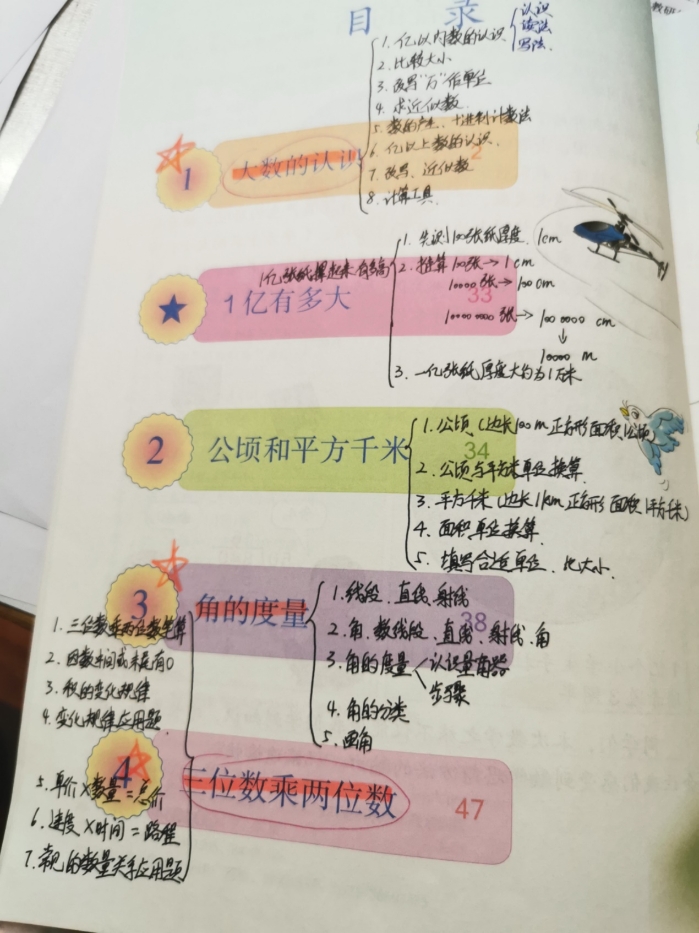 目 录
认识
读法
写法
教研
1. 亿以内数的认识
2. 比较大小
3. 改写"万"作单位
4. 求近似数
5. 数的产生、十进制计数法
6. 亿以上数的认识
7. 改写、近似数
8. 计算工具
1 大数的认识 2
1. 先测100张纸厚度 1cm
1亿张纸摞起来有多高
2. 推算 100张→1cm
10000张→100cm
100000000张→1000000 cm
↓
10000 m
3. 一亿张纸厚度大约为1万米
★ 1亿有多大 33
1. 公顷（边长100m正方形面积1公顷）
2. 公顷与平方米单位换算
3. 平方千米（边长1km正方形面积1平方千米）
4. 面积单位换算
5. 填写合适单位、比大小
2 公顷和平方千米 34
1. 线段、直线、射线
2. 角、数线段、直线、射线、角
3. 角的度量 认识量角器
步骤
4. 角的分类
5. 画角
3 角的度量 38
1. 三位数乘两位数笔算
2. 因数中间或末尾有0
3. 积的变化规律
4. 变化规律应用题
5. 单价×数量=总价
6. 速度×时间=路程
7. 常见的数量关系应用题
4 三位数乘两位数 47